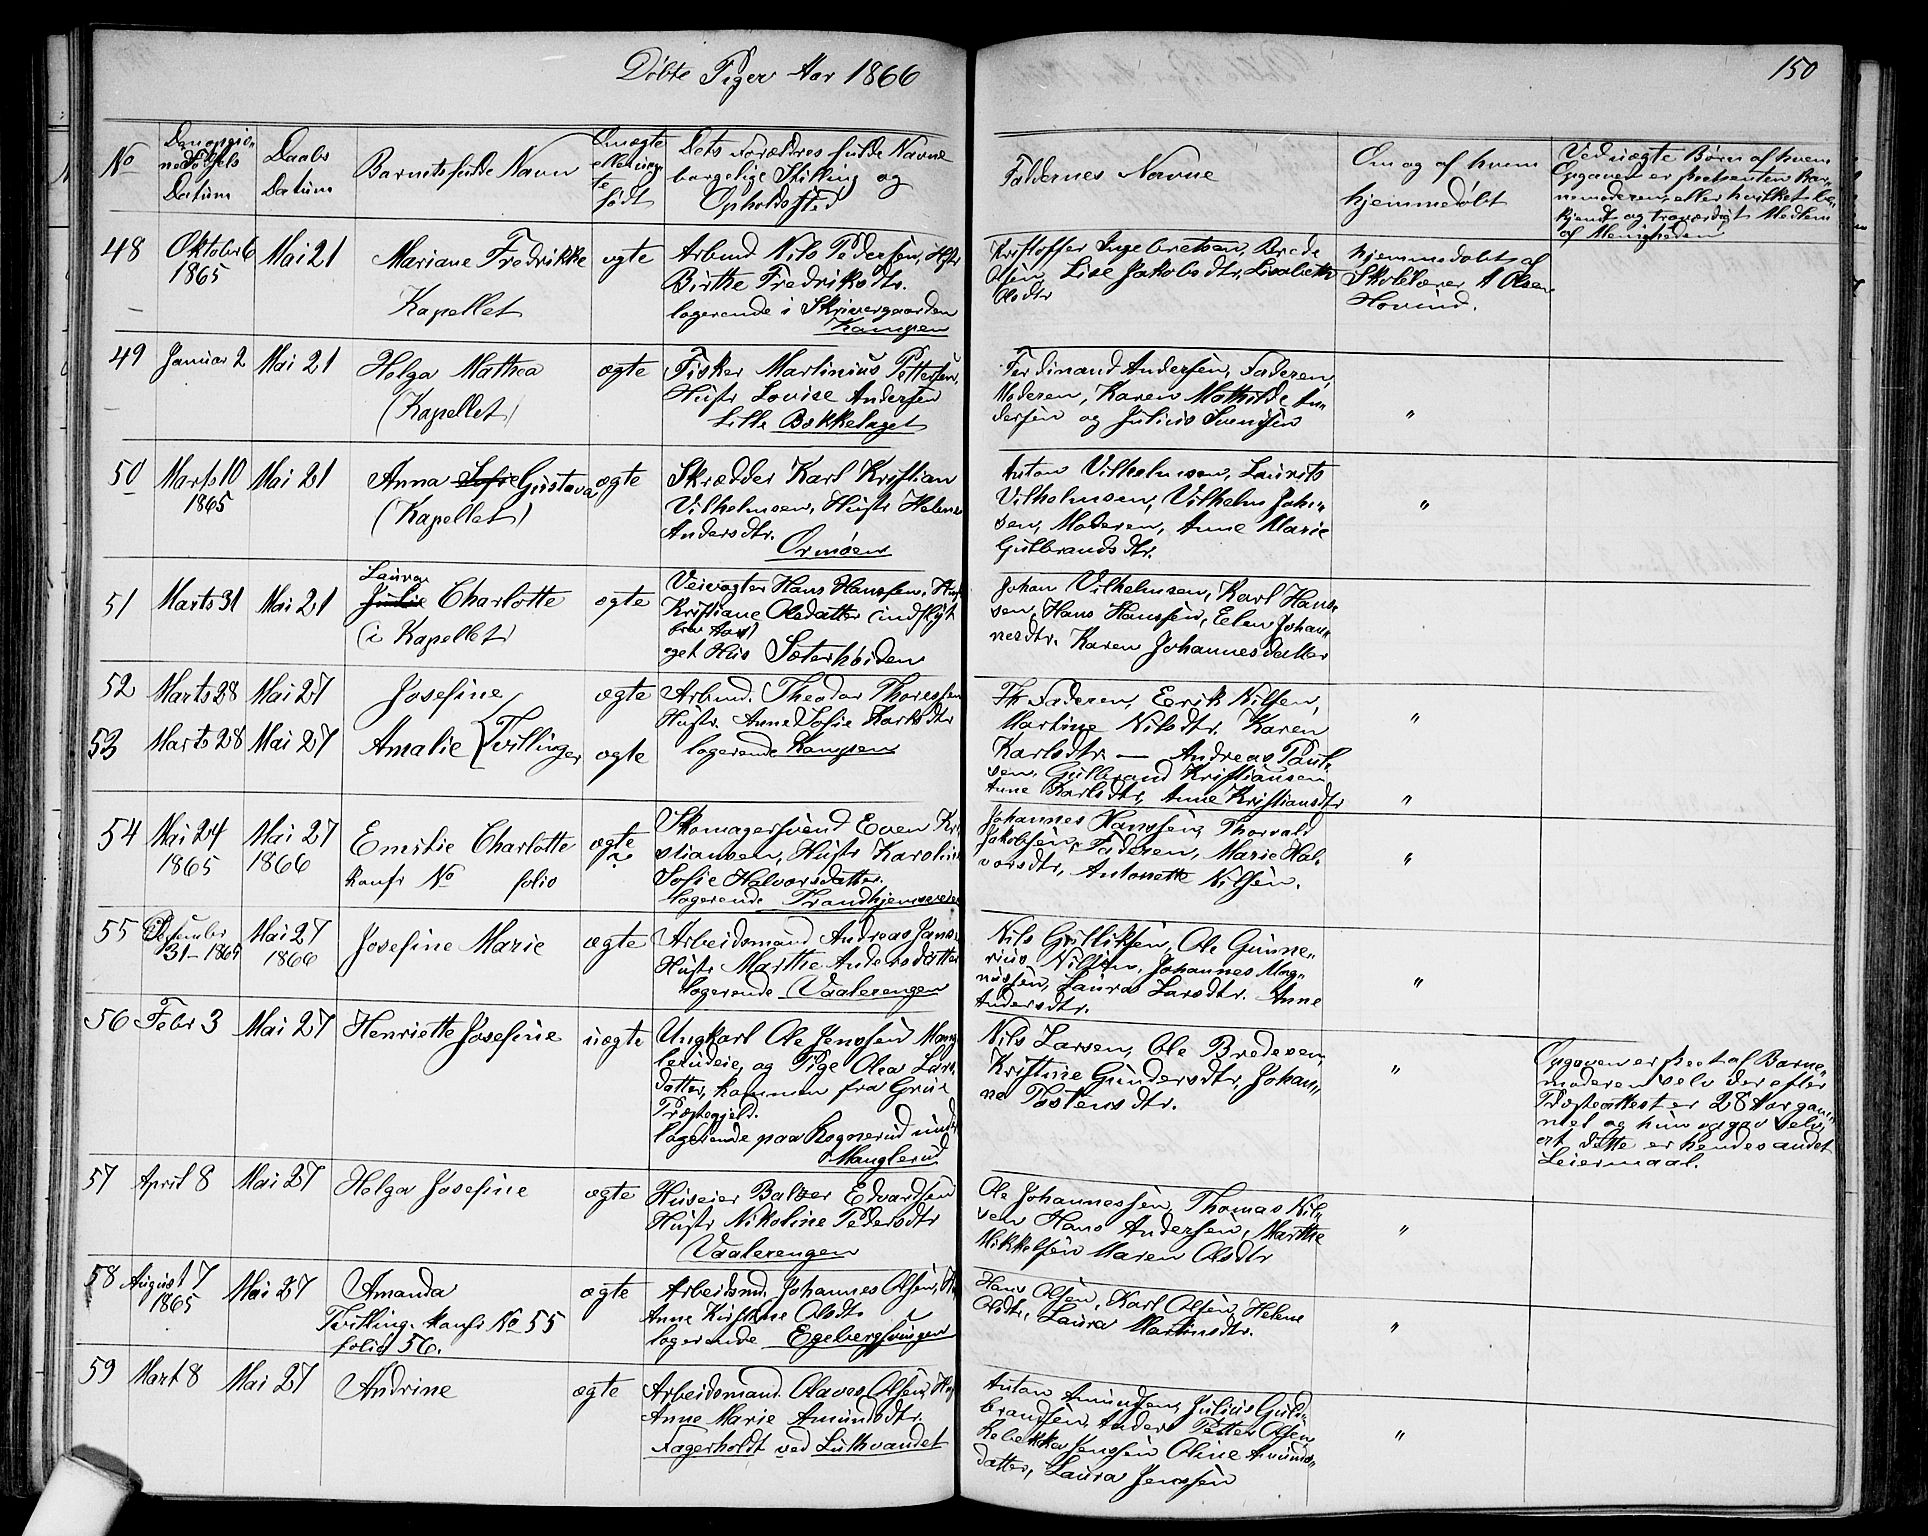 Døbte Piger Aar 1866
150
No
Den opgiv-
ne Fødsels
Datum
Daabs
Datum
Barnets fulde Navn
Om ægte
eller uæg-
te
født
Dets Forældres fulde Navne
borgelige Stilling og
Opholdssted
Faddernes Navne
Om og af hvem
hjemmedøbt
Ved uægte Børn af hvem
Opgaven er skeet enten Bar-
nemoderen, eller hvilket be-
kjendt og troværdigt Medlem
af Menigheden
48
Oktober 6
1865
Mai 21
Mariane Fredrikke
Kapellet
ægte
Arbmd Nils Pedersen, Hstr
Birthe Fredriksdtr.
logerende i Skrivergaarden
Kampen
Kristoffer Ingebretsen, Brede
Olsen, Lise Jakobsdtr, Lisabeth
Olsdtr
hjemmedøbt af
Skolelærer A Olsen
Hovind.
49
Januar 2
Mai 21
Helga Mathea
(Kapellet)
ægte
Fisker Martinius Pettersen,
Hustr Lovise Andersen
Lille Bækkelaget
Ferdinand Andersen, Faderen,
Moderen, Karen Mathilde An-
dersen og Julius Svendsen
"
50
Marts 10
1865
Mai 21
Anna Sofie Gustava
(Kapellet)
ægte
Skrædder Karl Kristian
Vilhelmsen, Hustr Helene
Andersdtr.
Ormøen
Anton Vilhelmsen, Laurits
Vilhelmsen, Vilhelm Joh-
sen, Moderen, Anne Marie
Gulbrandsdtr.
"
51
Marts 31
Mai 21
Laura
Julie Charlotte
(i Kapellet)
ægte
Veivogter Hans Hanssen, Hust
Kristiane Olsdatter (indflyt
eget Hus Sæterhøiden
Johan Vilhelmsen, Karl Hans-
sen, Hans Hanssen, Elen Johan-
nesdtr. Karen Johannesdatter
52
Marts 28
Mai 27
Josefine
ægte
Arbmd. Theodor Thoressen
Hustr. Anne Sofie Karlsdtr
logerende Kampen
Faderen, Erik Nilsen,
Martine Nilsdtr. Karen
Karlsdtr. — Andreas Paul-
sen, Gulbrand Kristiansen
Anne Karlsdtr, Anne Kristiansdtr
"
53
Marts 28
Mai 27
Amalie { Tvillinger
ægte
"
54
Mai 24
1865
Mai 27
1866
Emilie Charlotte
Konfr No folio
ægte
Skomagersvend Even Kri
stiansen, Hustr Karoline
Sofie Halvorsdatter.
logerende Trondhjemsveien
Johannes Hanssen, Thorvald
Jakobsen, Faderen, Marie Hal-
vorsdtr, Antonette Nilsen.
"
55
Desember
31 - 1865
Mai 27
1866
Josefine Marie
ægte
Arbeidsmand Andreas Jans
Hustr Marthe Andersdatter
logerende Vaalerengen
Nils Gulliksen, Ole Gunne-
rius Nilsen, Johannes Mag-
nussen, Laura Larsdtr. Anne
Andersdtr.
"
56
Febr 3
Mai 27
Henriette Josefine
uægte
Ungkarl Ole Jenssen Mang
lerudeie, og Pige Olea Lars
datter, kommen fra Grue
Præstegjeld.
logerende paa Rognerud und
Manglerud
Nils Larsen, Ole Bredesen,
Kristine Gundersdtr, Johan-
ne Tostensdtr.
"
Opgaven er skeet af Barne-
moderen selv der efter
Præsteattest er 28 Aar gam-
mel og hun opgav selv
at dette er hendes andet
Leiermaal.
57
April 8
Mai 27
Helga Josefine
ægte
Huseier Balzer Edvardsen
Hustr Nikoline Pedersdtr
Vaalerengen
Ole Johannessen, Thomas Nil-
sen Hans Andersen, Marthe
Mikkelsen Maren Olsdtr
"
58
August 7
1865
Mai 27
Amanda
Tvilling. konfr No 55
folio 56.
ægte
Arbeidsmd. Johannes Olsen, H
Anne Kirstine Olsdtr
logerende Egebergsvingen
Hans Olsen, Karl Olsen, Helene
Olsdtr, Laura Martinsdtr.
"
59
Mart 8
Mai 27
Andrine
ægte
Arbeidsmand. Olaves Olsen, Hu
Anne Marie Amundsdtr.
Fagerholdt ved Luthvandet
Anton Amundsen, Julius Gul-
brandsen, Anders Petter Olsen
Rebekka Jenssen Oline Amunds-
datter, Laura Jenssen
"